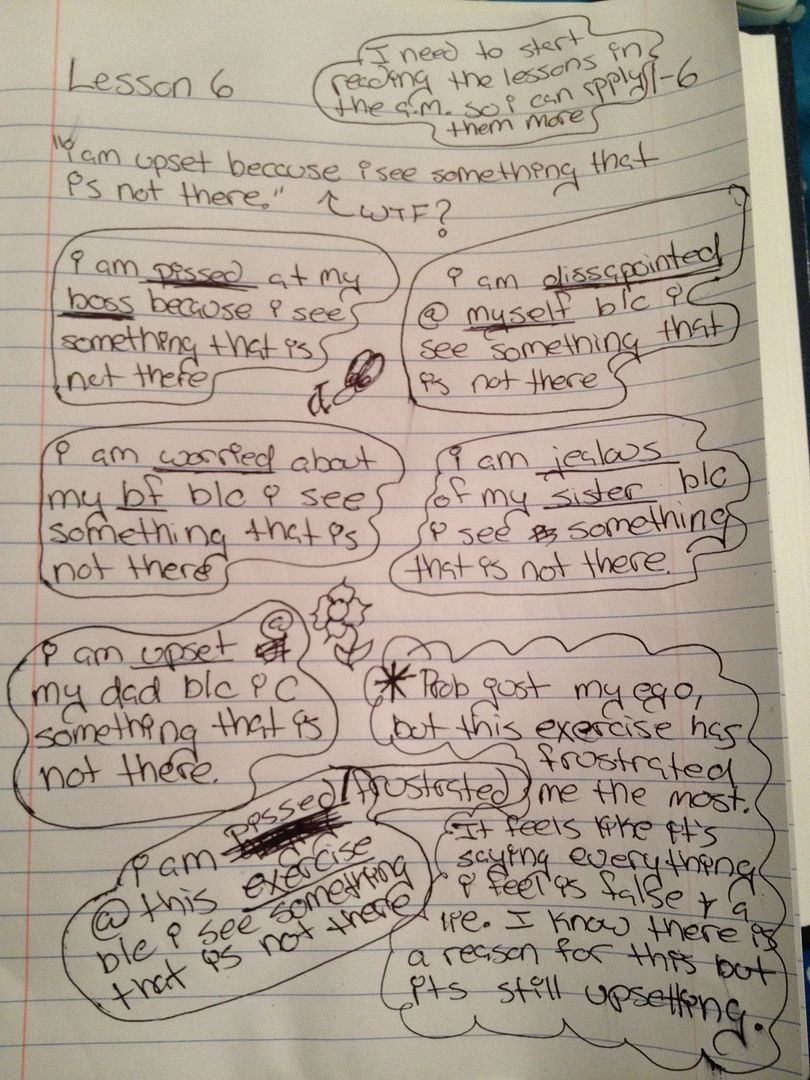 Lesson 6
I need to start
reading the lessons in
the a.m. so i can apply
them more
1-6
"i am upset because i see something that
is not there." WTF?
i am pissed at my
boss because i see
something that is
not there
i am dissapointed
@ myself b/c i C
see something that
is not there
i am worried about
my bf b/c i see
something that is
not there
i am jealous
of my sister b/c
i see something
that is not there.
i am upset @
my dad b/c i C
something that is
not there.
* Prob just my ego,
but this exercise has
frustrated
me the most.
It feels like it's
saying everything
i feel is false & a
lie. I know there is
a reason for this but
its still upsetting.
i am pissed/frustrated
@ this exercise
b/c i see something
that is not there